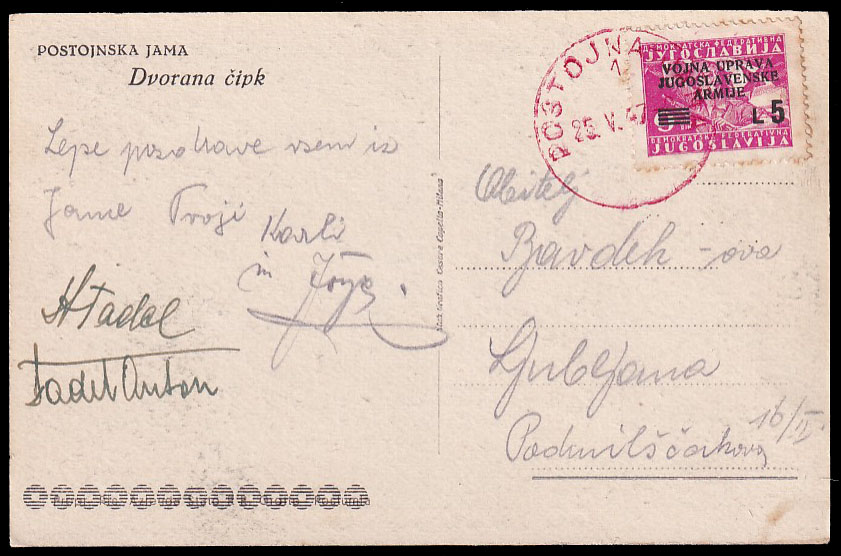 POSTOJNSKA JAMA
Dvorana čipk
Lepe pozdrave vsem iz
Jame Tvoji Karli
in
A Tadel
Tadel Anton
Stab. Grafico Cesare Capello - Milano
POSTOJNA
1
25. V. 47
ДЕМОКРАТСКА ФЕДЕРАТИВНА
ЈУГОСЛАВИЈА
VOJNA UPRAVA
JUGOSLAVENSKE
ARMIJE
L 5
DEMOKRATSKA FEDERATIVNA
JUGOSLAVIJA
Obitelj
Bavdek-ova
Ljubljana
16/II
Podmilščakova